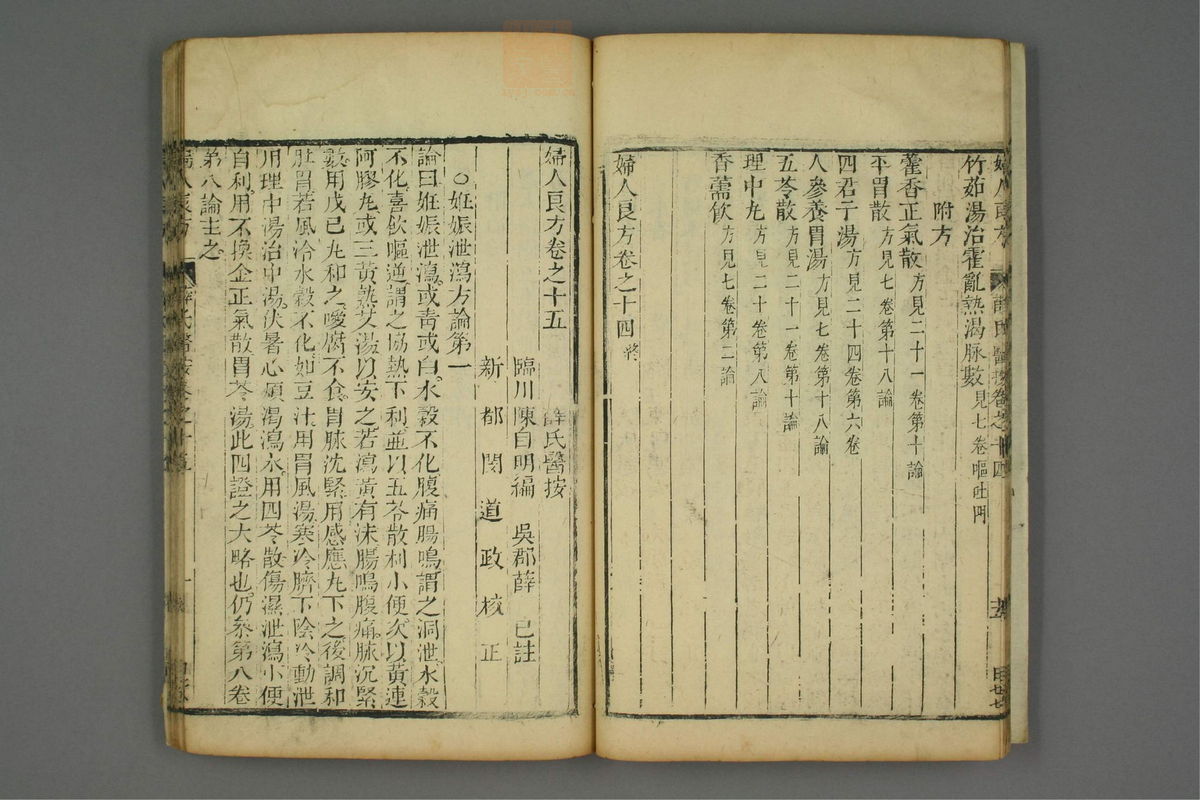 竹茹湯治霍亂熱渴脉數見七卷嘔吐門
附方
藿香正氣散方見二十一卷第十論
平胃散方見七卷第十八論
四君子湯方見二十四卷第六卷
人參養胃湯方見七卷第十八論
五苓散方見二十一卷第十論
理中丸方見二十卷第八論
香薷飲方見七卷第二論
婦人良方卷之十四終
婦人良方卷之十五 薛氏醫按
臨川陳自明編 吳郡薛 已註
新都閔道政核正
○姙娠泄瀉方論第一
論曰姙娠泄瀉或青或白水穀不化腹痛腸鳴謂之洞泄水穀
不化喜飲嘔逆謂之協熱下利並以五苓散利小便次以黃連
阿膠丸或三黃熟艾湯以安之若瀉黃有沫腸鳴腹痛脉沉緊
數用戊已丸和之噯腐不食胃脉沈緊用感應丸下之後調和
脾胃若風冷水穀不化如豆汁用胃風湯寒冷臍下陰冷動泄
用理中湯治中湯伏暑心煩渴瀉水用四苓散傷濕泄瀉小便
自利用不換金正氣散胃苓湯此四證之大略也仍叅第八卷
第八論主之